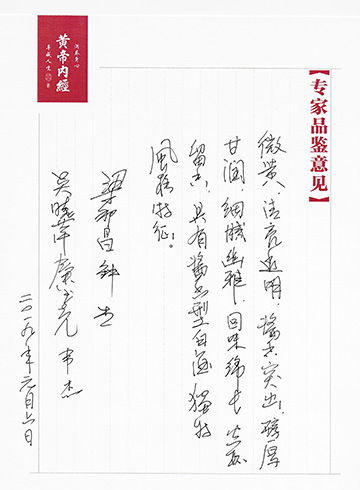 黄帝内經
【专家品鉴意见】
微黄、清亮透明、酱香突出、醇厚
甘润、细腻幽雅、回味绵长、空杯
留香、具有酱香型白酒独特
風格特征。
梁邦昌 钟杰
吴晓萍 韦杰
二〇一九年元月六日